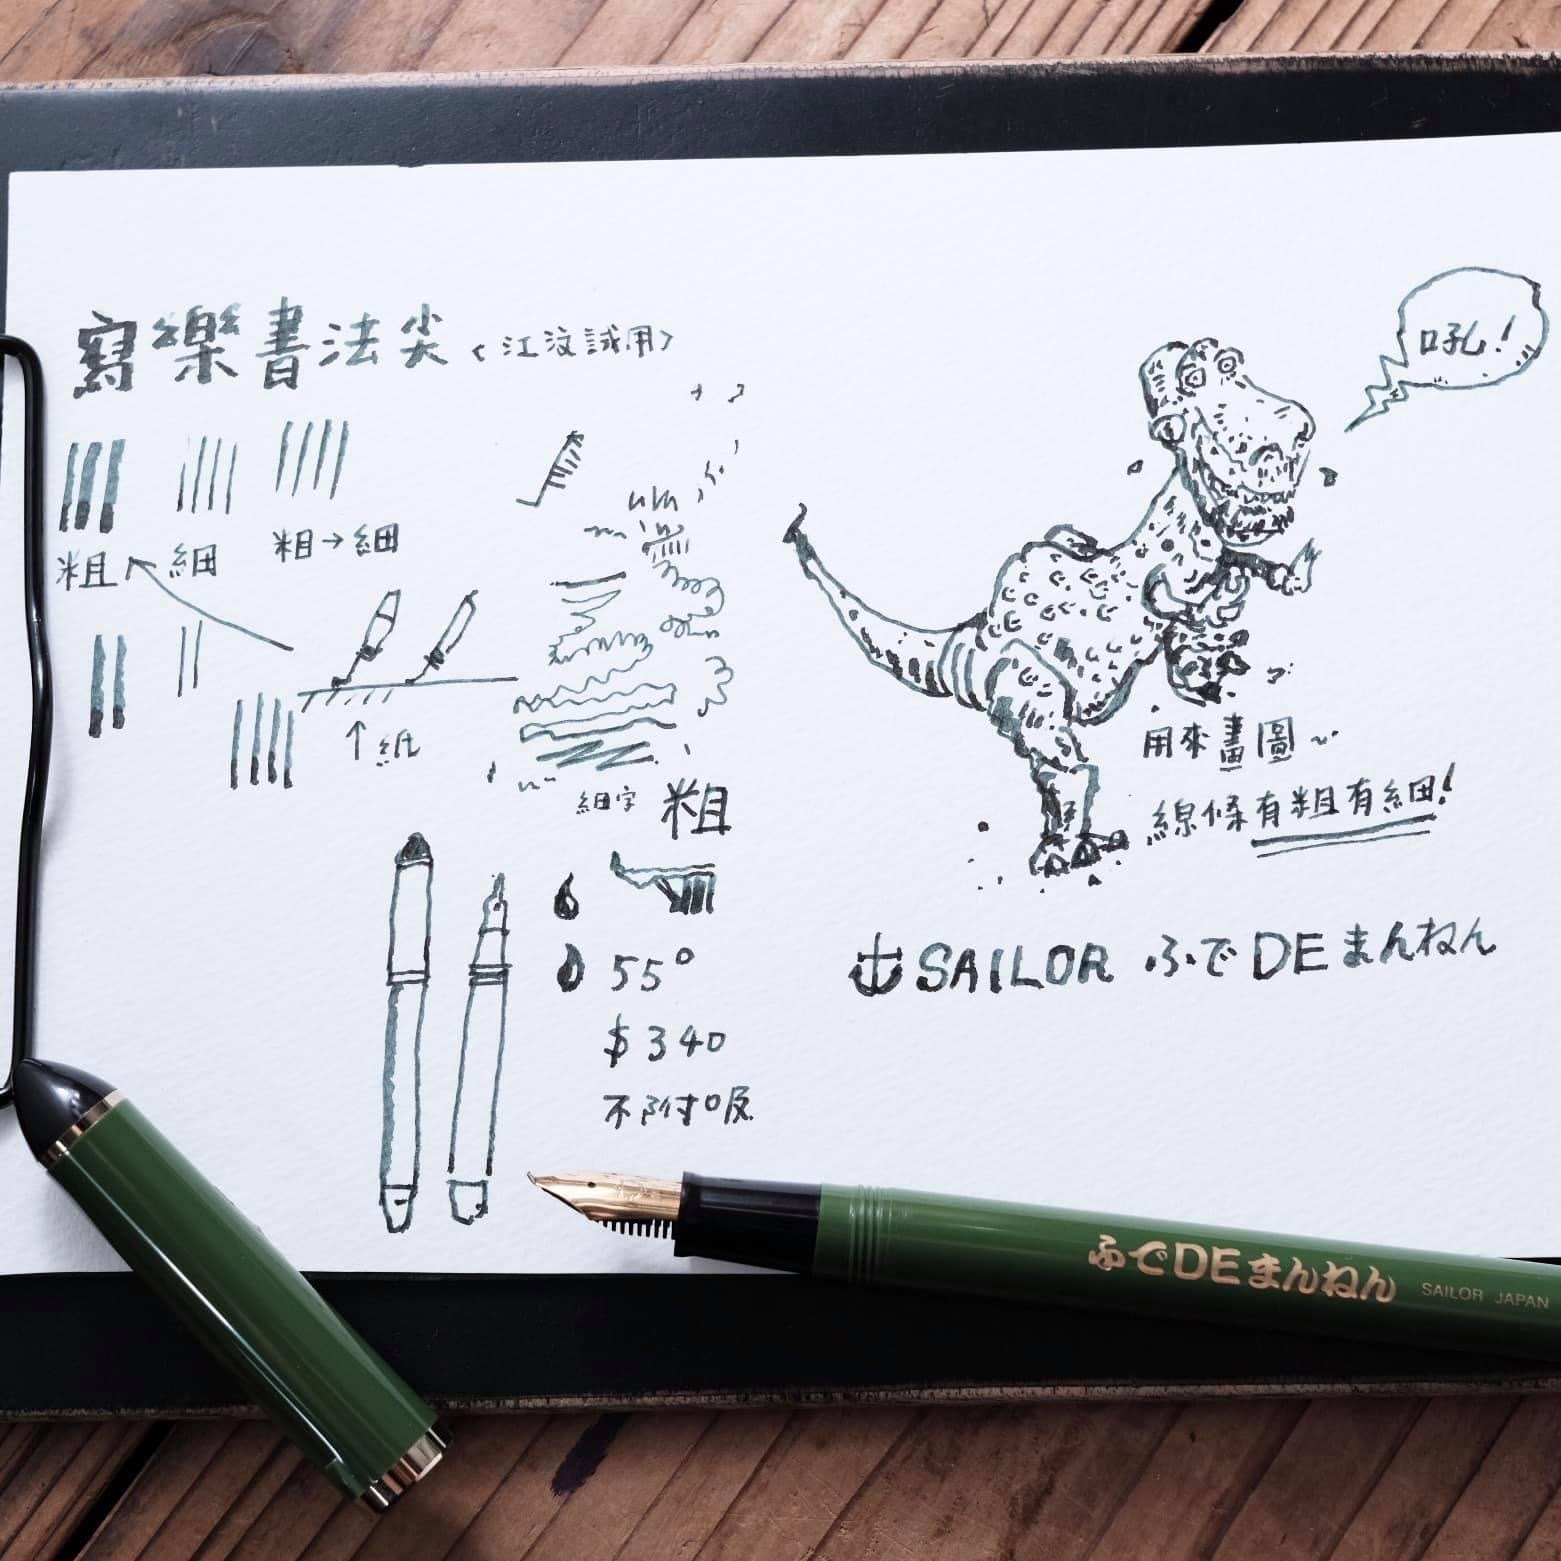 寫樂書法尖 <江汶試用>
粗 細 粗→細
↑紙
細字 粗
55°
$340
不附吸
吼!
用來畫圖~
線條有粗有細!
SAILOR ふでDEまんねん
ふでDEまんねん SAILOR JAPAN